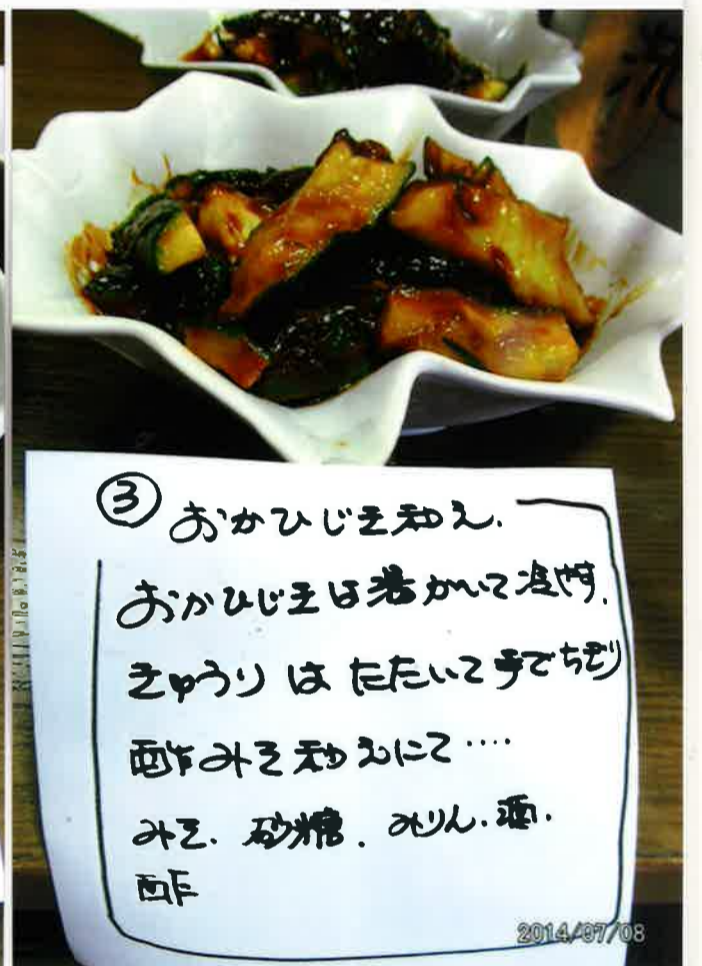 ③ おかひじき和え.
おかひじきは湯がいて冷やす.
きゅうりはたたいて手でちぎり
酢みそ和えにて····
みそ. 砂糖. みりん. 酒.
酢
2014/07/08